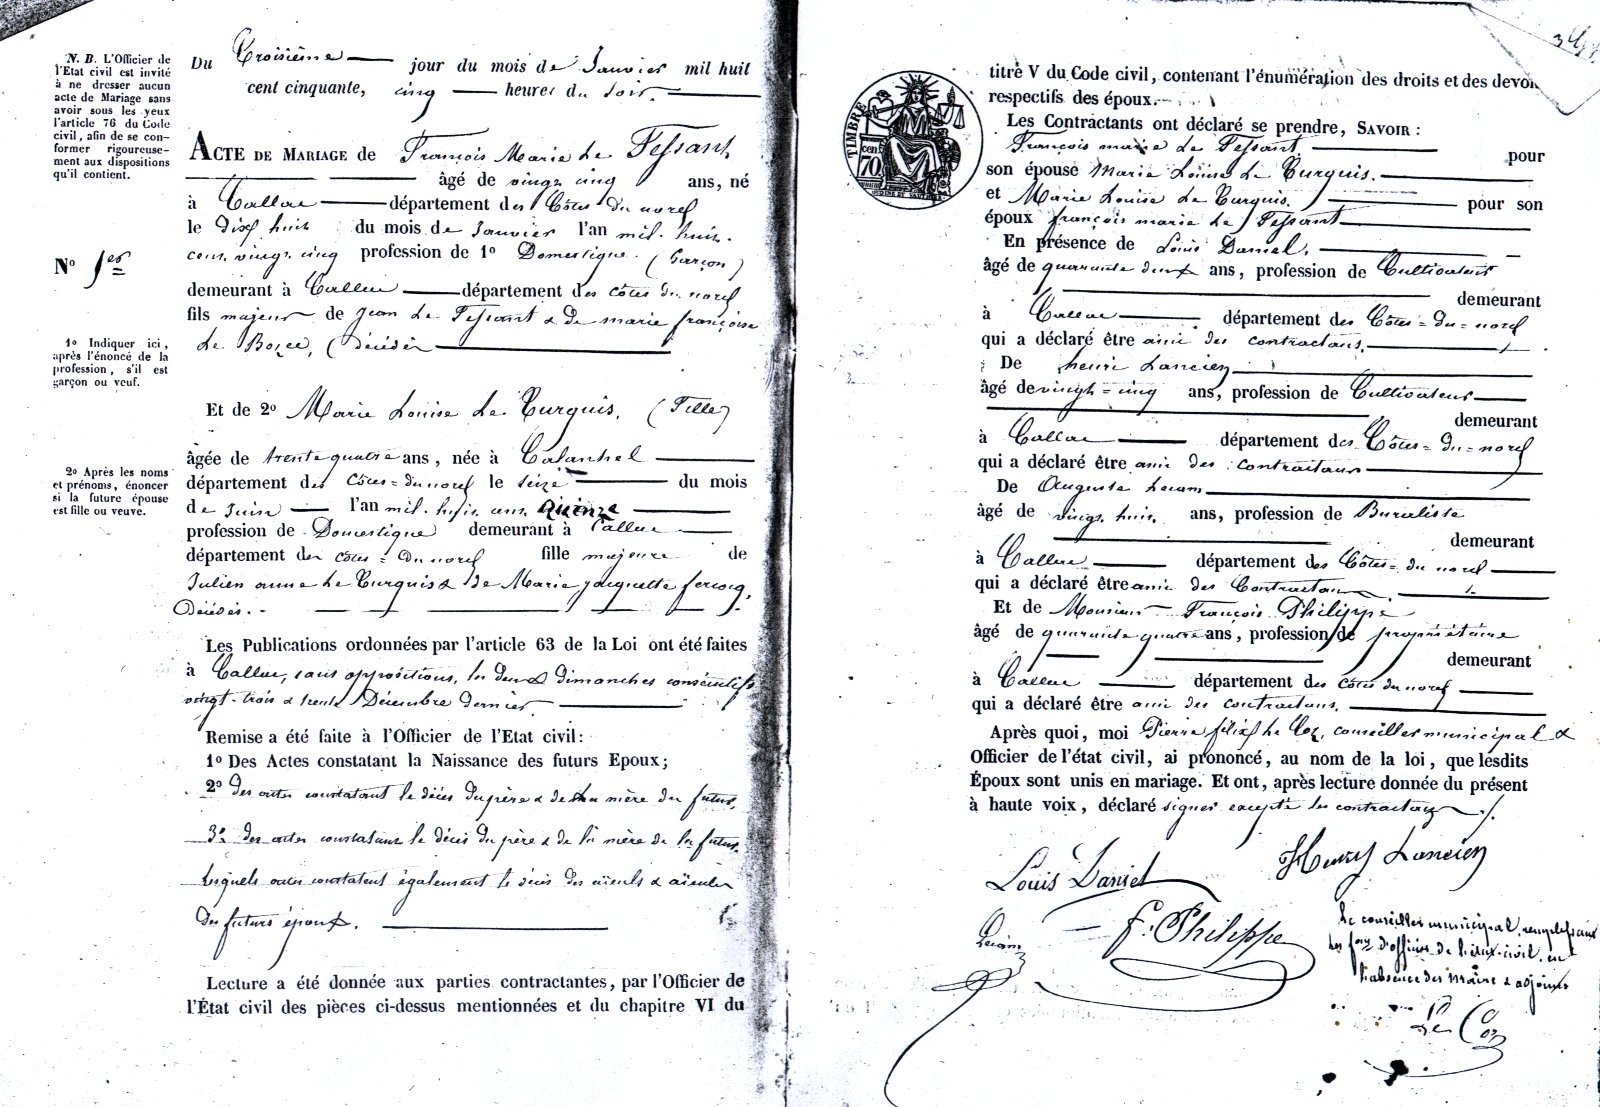 N. B. L'Officier de
l'Etat civil est invité
à ne dresser aucun
acte de Mariage sans
avoir sous les yeux
l'article 76 du Code
civil, afin de se con-
former rigoureuse-
ment aux dispositions
qu'il contient.
No 1er
1o Indiquer ici,
après l'énoncé de la
profession, s'il est
garçon ou veuf.
2o Après les noms
et prénoms, énoncer
si la future épouse
est fille ou veuve.
Du Troisième jour du mois de Janvier mil huit
cent cinquante, cinq heures du soir.
ACTE DE MARIAGE de François Marie Le Tessant
âgé de vingt cinq ans, né
à Callac département des Côtes du nord
le dix huit du mois de Janvier l'an mil huit
cent vingt cinq profession de 1o Domestique (Garçon)
demeurant à Callac département des côtes du nord
fils majeur de Jean Le Tessant & de marie françoise
Le Bozec, (décédés
Et de 2o Marie Louise Le Turquis. (Fille)
âgée de trente quatre ans, née à Calanhel
département des Côtes=du nord le seize du mois
de Juin l'an mil huit cent Quinze
profession de Domestique demeurant à Callac
département des côtes=du nord fille majeure de
Julien anne Le Turquis & de Marie jacquette fercoq,
Décédés.
Les Publications ordonnées par l'article 63 de la Loi ont été faites
à Callac, sans oppositions, les deux dimanches consécutifs
vingt-trois & trente Décembre dernier.
Remise a été faite à l'Officier de l'Etat civil:
1o Des Actes constatant la Naissance des futurs Epoux;
2o des actes constatant le décès du père & de la mère du futur.
3o des actes constatant le décès du père & de la mère de la future.
Lesquels actes constatent également le décès des aïeuls & aïeules
des futurs époux.
Lecture a été donnée aux parties contractantes, par l'Officier de
l'État civil des pièces ci-dessus mentionnées et du chapitre VI du
TIMBRE
cen.
70
titre V du Code civil, contenant l'énumération des droits et des devoirs
respectifs des époux.
Les Contractants ont déclaré se prendre, SAVOIR :
François marie Le Tessant pour
son épouse Marie Louise Le Turquis.
et Marie Louise Le Turquis. pour son
époux françois marie Le Tessant
En présence de Louis Daniel,
âgé de quarante deux ans, profession de Cultivateur
demeurant
à Callac département des Côtes=du=nord
qui a déclaré être ami des contractans.
De henri Lancien
âgé de vingt=cinq ans, profession de Cultivateur
demeurant
à Callac département des Côtes=du=nord
qui a déclaré être ami des contractans
De Auguste
âgé de vingt huit ans, profession de Buraliste
demeurant
à Callac département des Côtes=du nord
qui a déclaré être ami des Contractans
Et de Monsieur François Philippe
âgé de quarante quatre ans, profession de propriétaire
demeurant
à Callac département des côtes du nord
qui a déclaré être ami des contractans.
Après quoi, moi Pierre félix Le Coz, conseiller municipal &
Officier de l'état civil, ai prononcé, au nom de la loi, que lesdits
Époux sont unis en mariage. Et ont, après lecture donnée du présent
à haute voix, déclaré signer excepté les contractans
Louis Daniel
Henry Lancien
F. Philippe
Le conseiller municipal, remplissant
les fons d'officier de l'état-civil en
l'absence des Maire & adjoints
Le Coz